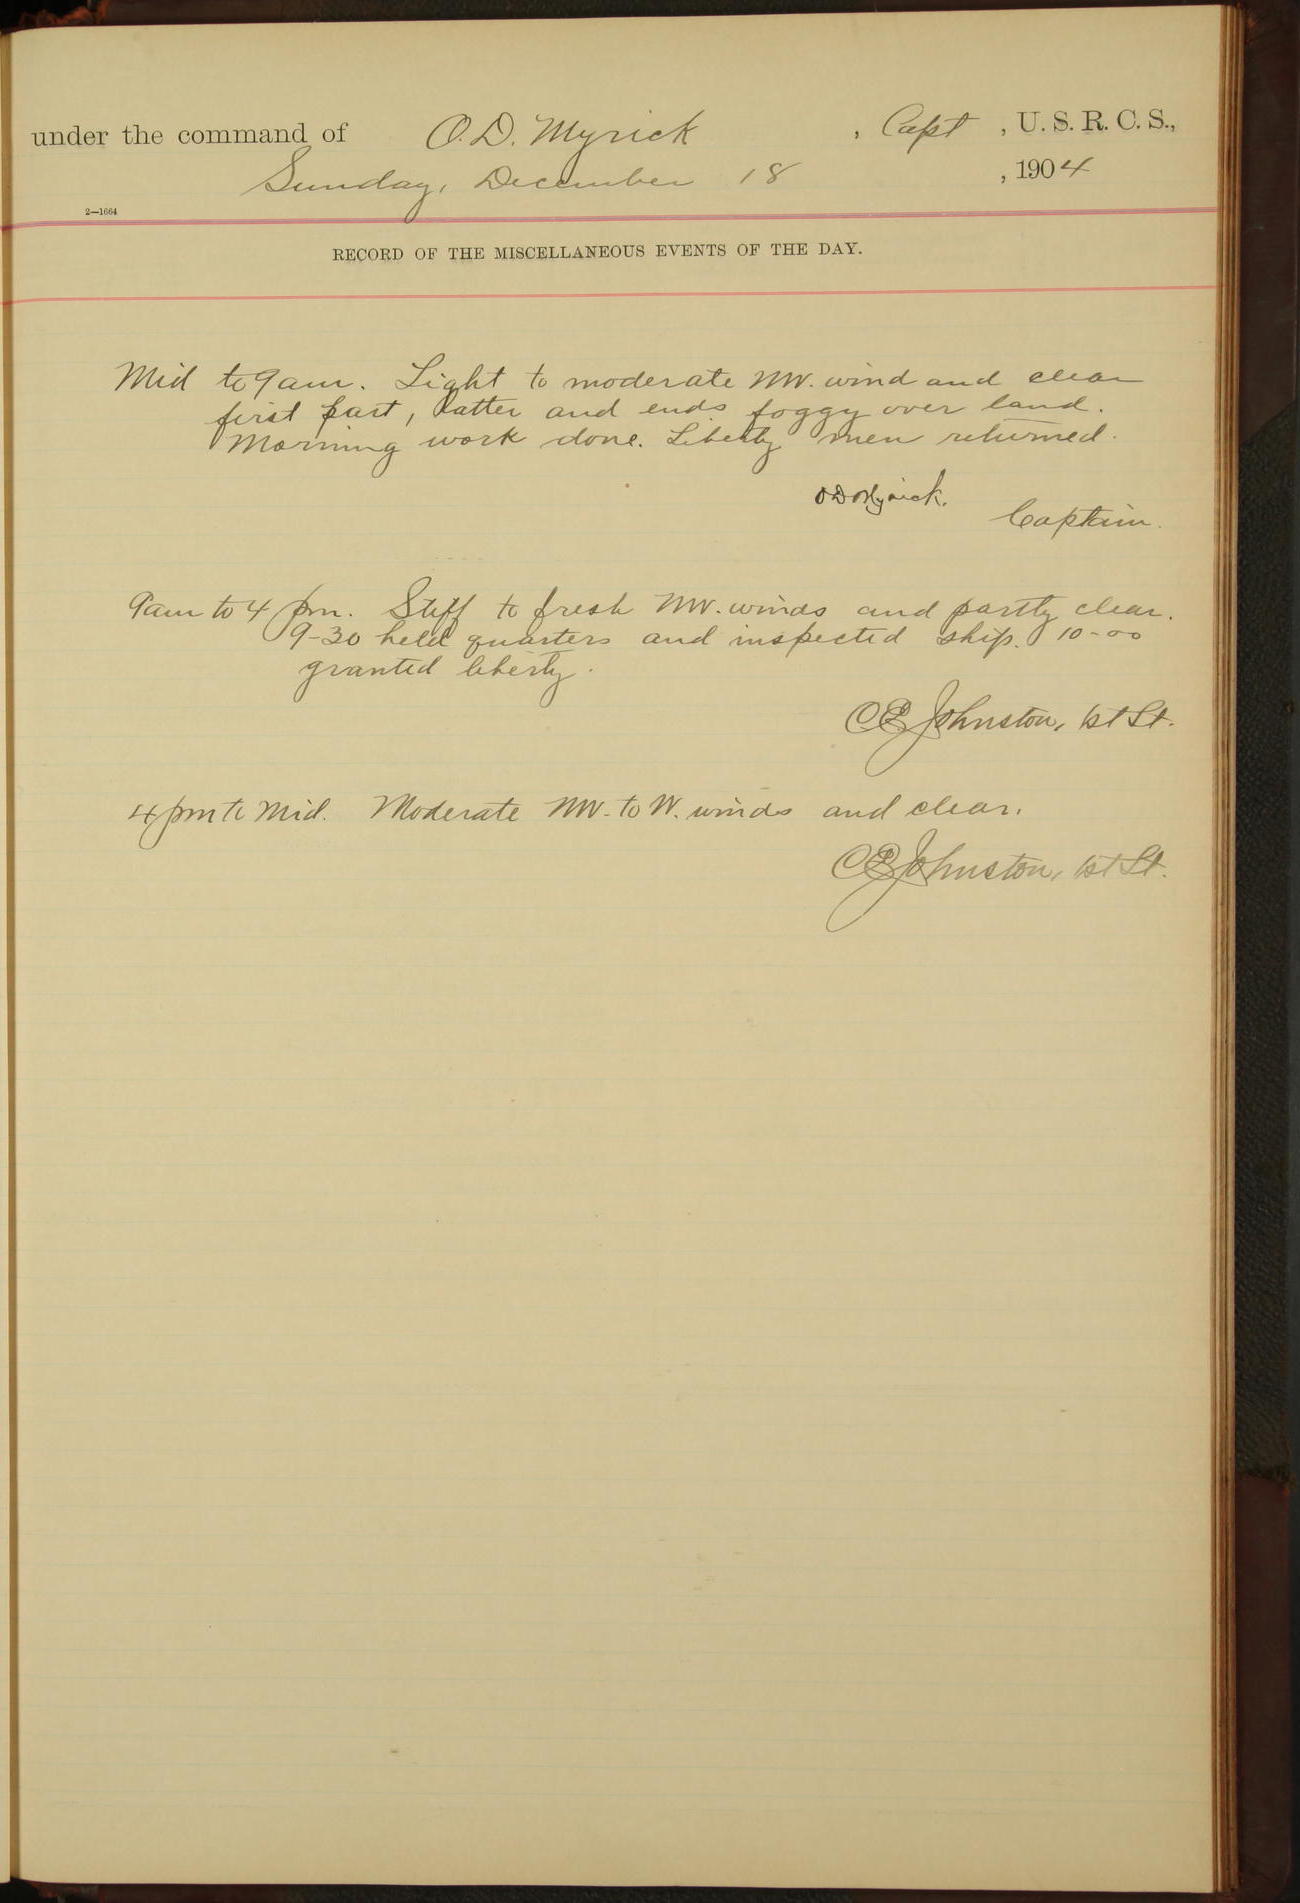 under the command of O. D. Myrick, Capt, U. S. R. C. S.,
Sunday, December 18, 1904
2—1664
RECORD OF THE MISCELLANEOUS EVENTS OF THE DAY.
Mid to 9 am. Light to moderate NW. wind and clear
first part, latter and ends foggy over land.
Morning work done. Liberty men returned.
O D Myrick.
Captain.
9 am to 4 pm. Stiff to fresh NW. winds and partly clear.
9-30 held quarters and inspected ship. 10-00
granted liberty.
C E Johnston, 1st Lt.
4 pm to Mid. Moderate NW. to W. winds and clear.
C E Johnston, 1st Lt.